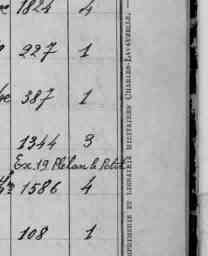 1824 4
227 1
387 1
1344 3
Ex. 19 Plélan le Petit
1586 4
108 1
IMPRIMERIE ET LIBRAIRIE MILITAIRES CHARLES-LAVAUZELLE. —